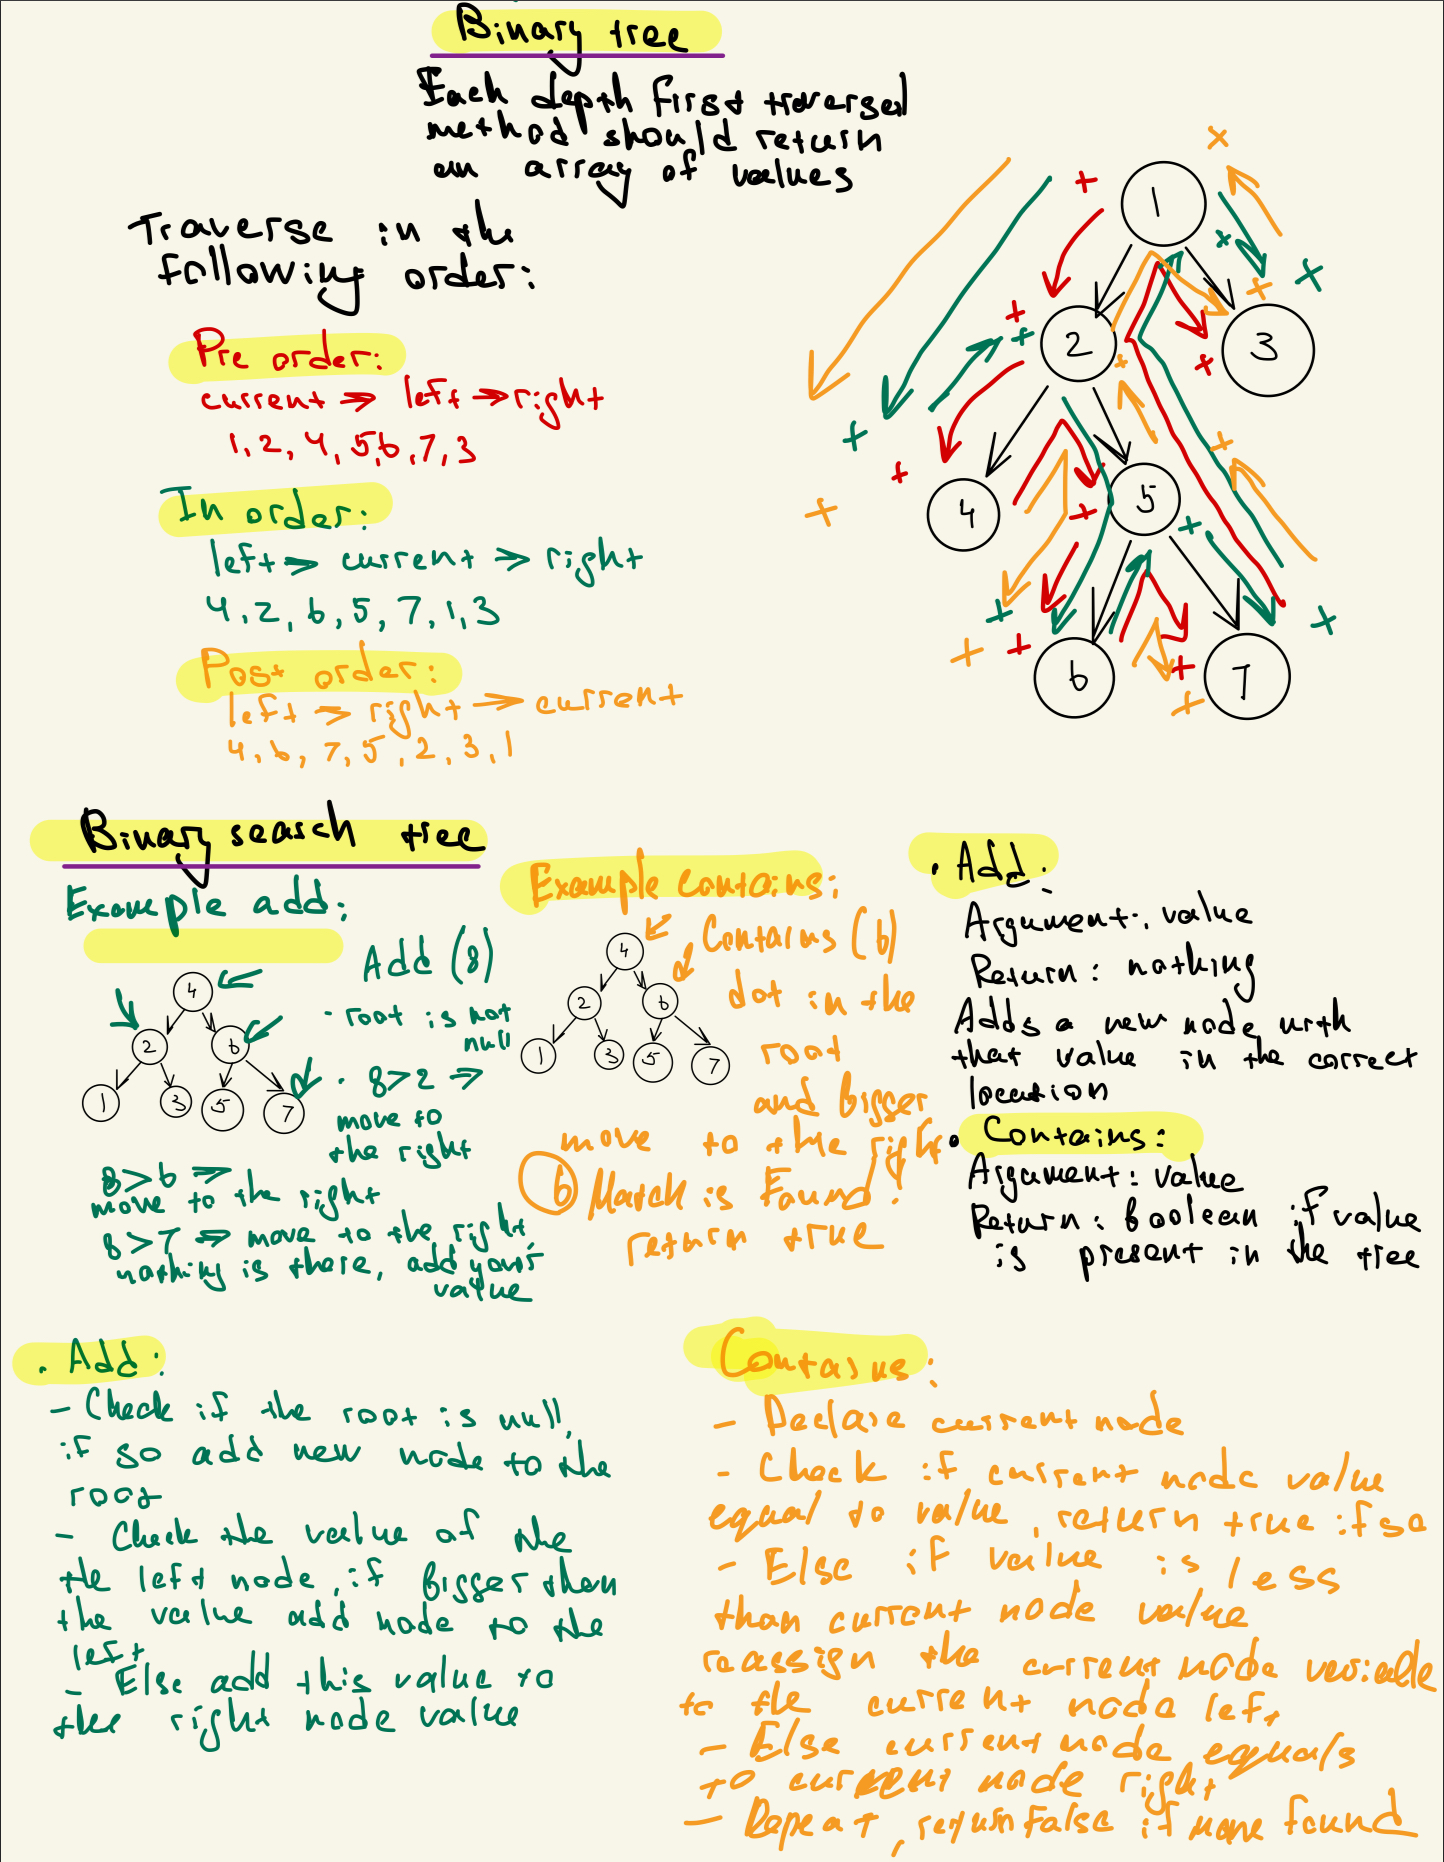 Binary tree
Each depth first traversal
method should return
an array of values
Traverse in the
following order:
Pre order:
current => left => right
1, 2, 4, 5, 6, 7, 3
In order:
left => current => right
4, 2, 6, 5, 7, 1, 3
Post order:
left => right => current
4, 6, 7, 5, 2, 3, 1
1
2
3
4
5
6
7
Binary search tree
Example add:
Add (8)
4
2
6
1
3
5
7
· root is not
null
· 8>2 =>
move to
the right
8>6 =>
move to the right
8>7 => move to the right,
nothing is there, add your
value
Example contains:
Contains (6)
4
2
6
1
3
5
7
dot in the
root
and bigger
move to the right.
6 Match is Found!
return true
· Add:
Argument: value
Return: nothing
Adds a new node with
that value in the correct
location
· Contains:
Argument: value
Return: boolean if value
is present in the tree
· Add:
- Check if the root is null,
if so add new node to the
root
- Check the value of the
the left node, if bigger than
the value add node to the
left
- Else add this value to
the right node value
Contains:
- Declare current node
- Check if current node value
equal to value, return true if so
- Else if value is less
than current node value
reassign the current node variable
to the current node left
- Else current node equals
to current node right
- Repeat, return False if none found